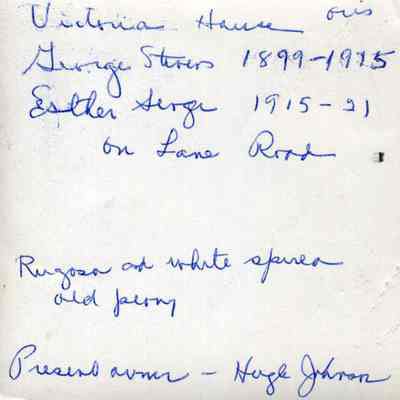 Victoria House
George Stevers 1899-1915
Esther Serge 1915-21
on Lane Road
Rugosa and white spirea
old peony
Present owner - Hugh Johnson